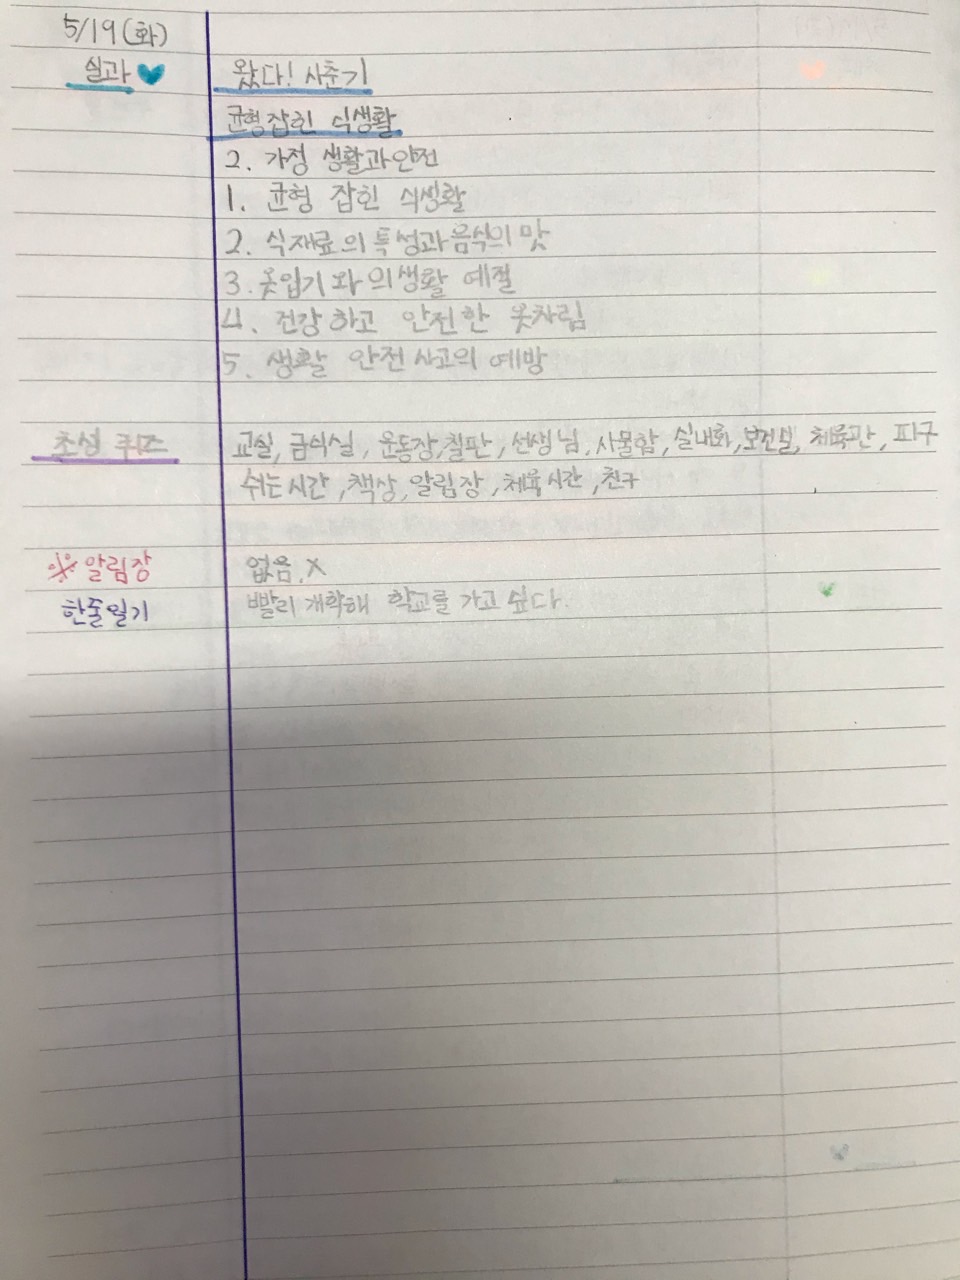 5/19(화)
실과 왔다! 사춘기
균형잡힌 식생활
2. 가정 생활과안전
1. 균형 잡힌 식생활
2. 식재료의 특성과 음식의 맛
3. 옷입기와 의생활 예절
4. 건강하고 안전한 옷차림
5. 생활 안전사고의 예방
초성 퀴즈 교실, 급식실, 운동장, 칠판, 선생님, 사물함, 실내화, 보건실, 체육관, 피구
쉬는시간, 책상, 알림장, 체육시간, 친구
※ 알림장 없음. X
한줄일기 빨리 개학해 학교를 가고 싶다.